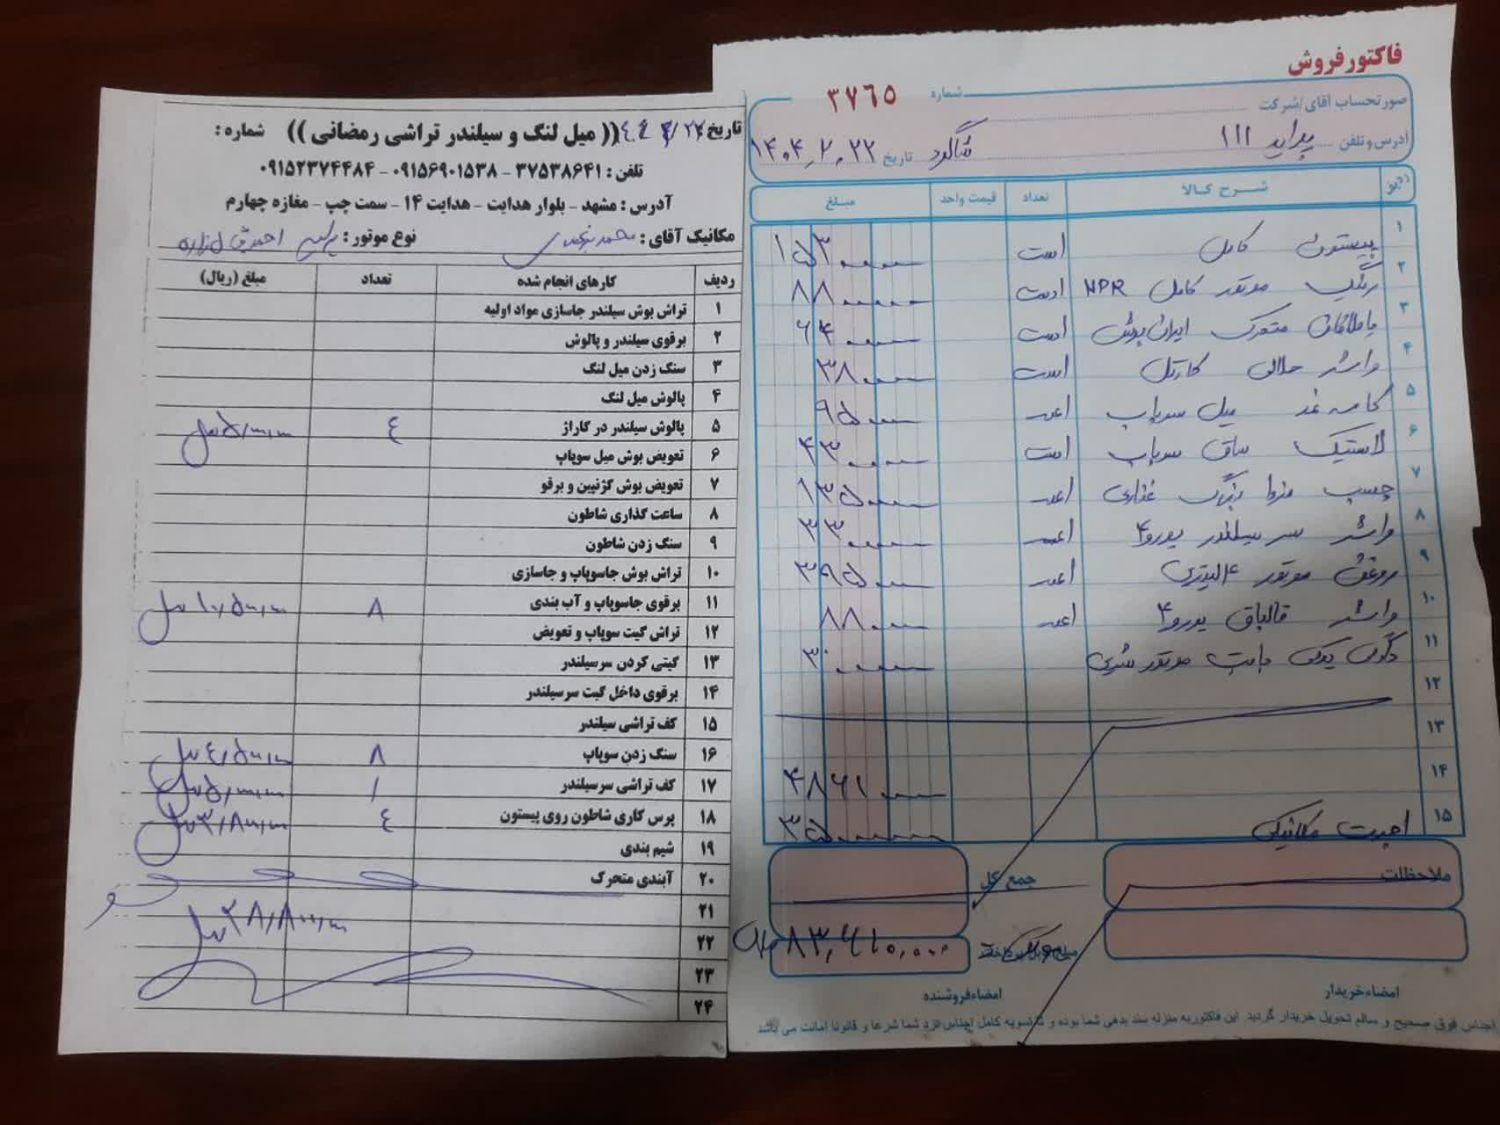 فاکتور فروش
شماره ۳۷۶۵
صورتحساب آقای/شرکت
آدرس و تلفن پراید ۱۱۱ تاریخ ۱۴۰۴٫۲٫۲۲
ردیف شرح کالا تعداد قیمت واحد مبلغ
۱ پیستون کامل ۱ست ۱۵۳۰۰۰۰۰
۲ رینگ موتور کامل NPR ۱دست ۸۸۰۰۰۰۰
۳ یاطاقان متحرک ایران پوش ۱دست ۶۴۰۰۰۰۰
۴ واشر حلالی کارتل ۱ست ۳۸۰۰۰۰۰
۵ کاسه نمد میل سوپاپ ۱عدد ۹۵۰۰۰۰
۶ لاستیک ساق سوپاپ ۱ست ۴۳۰۰۰۰۰
۷ چسب ۱عدد ۱۳۵۰۰۰۰
۸ واشر سرسیلندر یورو۴ ۱عدد ۳۳۰۰۰۰۰
۹ روغن موتور ۴لیتری ۱عدد ۳۹۵۰۰۰۰
۱۰ واشر قالپاق یورو۴ ۱عدد ۸۸۰۰۰۰
۱۱
۱۲
۱۳
۱۴ ۴۸۶۱۰۰۰۰
۱۵ اجرت مکانیکی ۳۵۰۰۰۰۰۰
ملاحظات جمع کل
۸۳,۶۱۰,۰۰۰
امضاءخریدار امضاءفروشنده
اجناس فوق صحیح و سالم تحویل خریدار گردید. این فاکتور به منزله سند بدهی شما بوده و تا تسویه کامل اجناس نزد شما شرعا و قانونا امانت می باشد
تاریخ (( میل لنگ و سیلندر تراشی رمضانی )) شماره :
تلفن : ۳۷۵۳۸۶۴۱ - ۰۹۱۵۶۹۰۱۵۳۸ - ۰۹۱۵۲۳۷۴۴۸۴
آدرس : مشهد - بلوار هدایت - هدایت ۱۴ - سمت چپ - مغازه چهارم
مکانیک آقای : نوع موتور :
ردیف کارهای انجام شده تعداد مبلغ (ریال)
۱ تراش بوش سیلندر جاسازی مواد اولیه
۲ برقوی سیلندر و پالوش
۳ سنگ زدن میل لنگ
۴ پالوش میل لنگ
۵ پالوش سیلندر در کاراژ ٤ ۵/۰۰۰/۰۰۰
۶ تعویض بوش میل سوپاپ
۷ تعویض بوش گژنپین و برقو
۸ ساعت گذاری شاطون
۹ سنگ زدن شاطون
۱۰ تراش بوش جاسوپاپ و جاسازی
۱۱ برقوی جاسوپاپ و آب بندی ۸ ۱۰/۵۰۰/۰۰۰
۱۲ تراش گیت سوپاپ و تعویض
۱۳ گیتی کردن سرسیلندر
۱۴ برقوی داخل گیت سرسیلندر
۱۵ کف تراشی سیلندر
۱۶ سنگ زدن سوپاپ ۸ ٤/۵۰۰/۰۰۰
۱۷ کف تراشی سرسیلندر ۱ ۵/۰۰۰/۰۰۰
۱۸ پرس کاری شاطون روی پیستون ٤ ۳/۸۰۰/۰۰۰
۱۹ شیم بندی
۲۰ آبندی متحرک
۲۱
۲۲ ۲۸/۸۰۰/۰۰۰
۲۳
۲۴